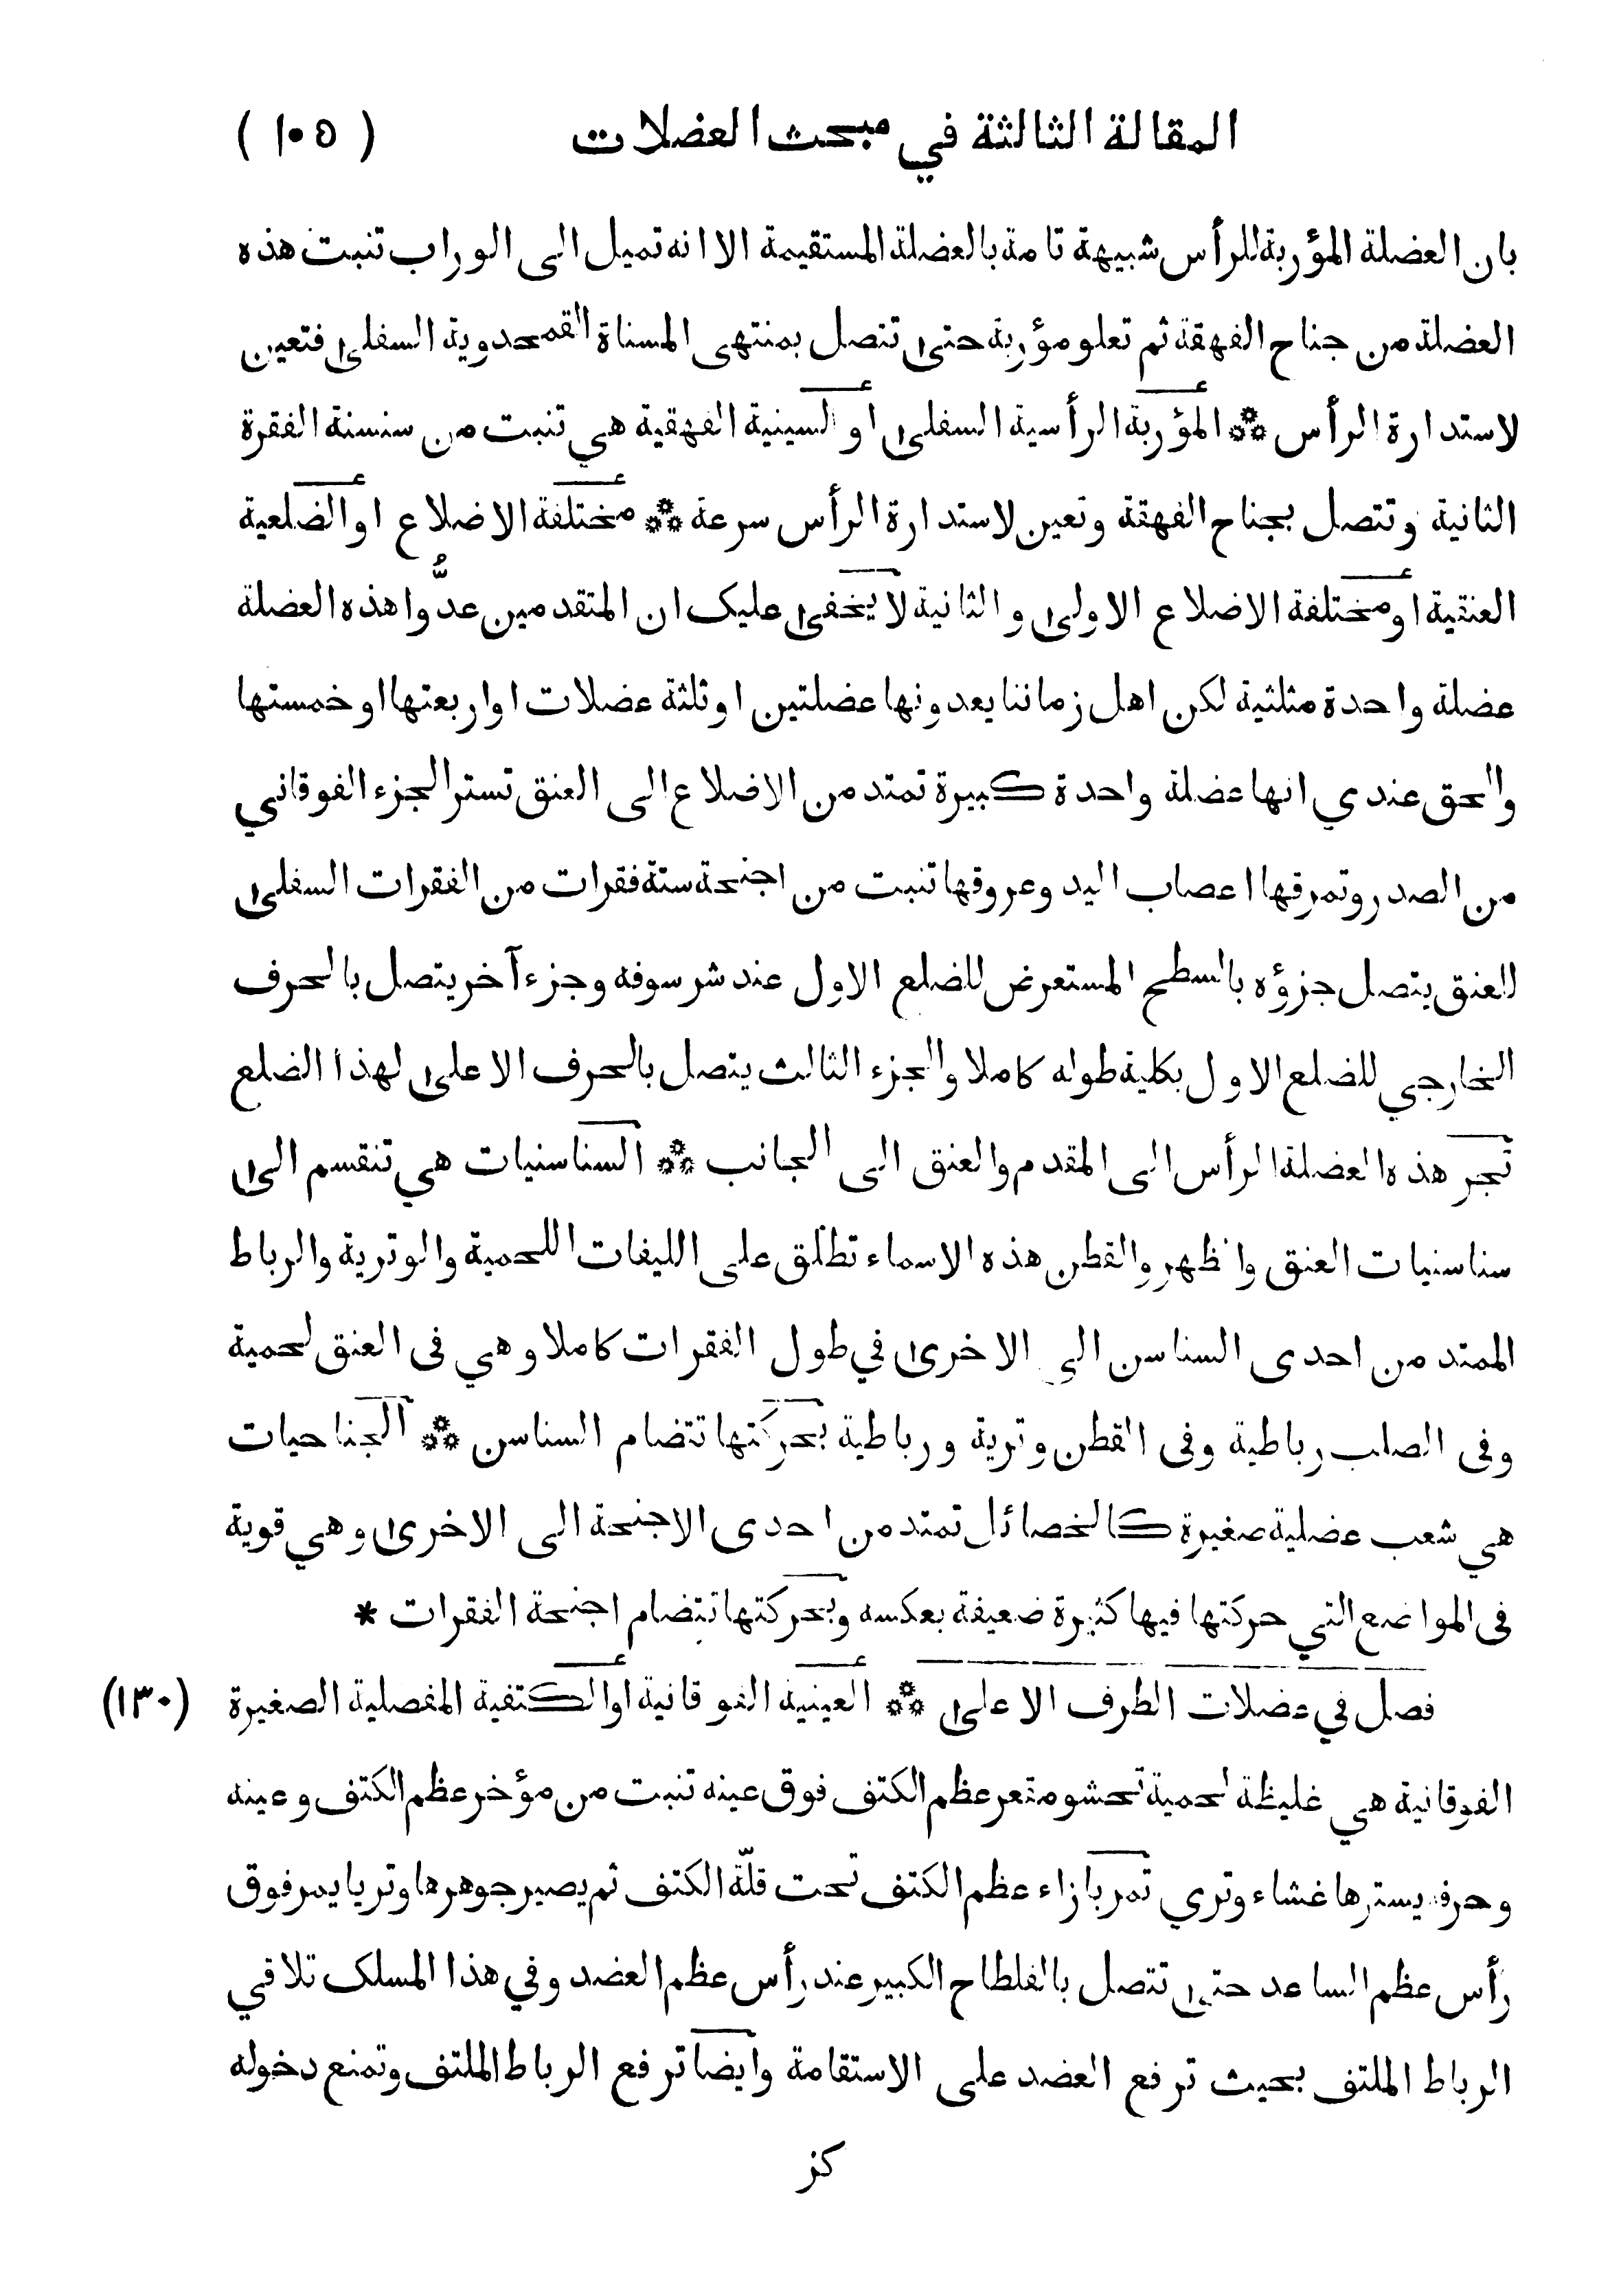 المقالة الثالثة في مبحث العضلات ( ١٠٥ )
بان العضلة المؤربة للرأس شبيهة تامة بالعضلة المستقيمة الا انه تميل الى الوراب تنبت هذه
العضلة من جناح الفهقة ثم تعلو مؤربة حتىٰ تتصل بمنتهى المسناة القمحدوية السفلىٰ فتعين
لاستدارة الرأس ⁂ المؤربة الرأسية السفلىٰ او السينية الفهقية هي تنبت من سنسنة الفقرة
الثانية وتتصل بجناح الفهقة وتعين لاستدارة الرأس سرعة ⁂ مختلفة الاضلاع او الضلعية
العنقية او مختلفة الاضلاع الاولىٰ والثانية لا يخفىٰ عليك ان المتقدمين عدُّوا هذه العضلة
عضلة واحدة مثلثية لكن اهل زماننا يعدونها عضلتين او ثلثة عضلات او اربعتها او خمستها
والحق عندي انها عضلة واحدة كبيرة تمتد من الاضلاع الى العنق تستر الجزء الفوقاني
من الصدر وتمر فيها اعصاب اليد وعروقها تنبت من اجنحة ستة فقرات من الفقرات السفلىٰ
للعنق يتصل جزؤه بالسطح المستعرض للضلع الاول عند شرسوفه وجزء آخر يتصل بالحرف
الخارجي للضلع الاول بكلية طوله كاملا والجزء الثالث يتصل بالحرف الاعلىٰ لهذا الضلع
تجر هذه العضلة الرأس الى المقدم والعنق الى الجانب ⁂ السناسنيات هي تنقسم الىٰ
سناسنيات العنق والظهر والقطن هذه الاسماء تطلق على الليفات اللحمية والوترية والرباط
الممتد من احدى السناسن الى الاخرىٰ في طول الفقرات كاملا وهي فى العنق لحمية
وفى الصلب رباطية وفى القطن وترية ورباطية بحركتها تتضام السناسن ⁂ الجناحيات
هي شعب عضلية صغيرة كالخصائل تمتد من احدى الاجنحة الى الاخرىٰ وهي قوية
فى المواضع التي حركتها فيها كثيرة ضعيفة بعكسه وبحركتها تتضام اجنحة الفقرات *
فصل في عضلات الطرف الاعلىٰ ⁂ العينية الفوقانية او الكتفية المفصلية الصغيرة (١٣٠)
الفوقانية هي غليظة لحمية تحشو مقعر عظم الكتف فوق عينه تنبت من مؤخر عظم الكتف وعينه
وحرفه يسترها غشاء وتري تمر بازاء عظم الكتف تحت قلّة الكتف ثم يصير جوهرها وتريا يمر فوق
رأس عظم الساعد حتىٰ تتصل بالفلطاح الكبير عند رأس عظم العضد وفي هذا المسلك تلاقي
الرباط الملتف بحيث ترفع العضد على الاستقامة وايضا ترفع الرباط الملتف وتمنع دخوله
كز